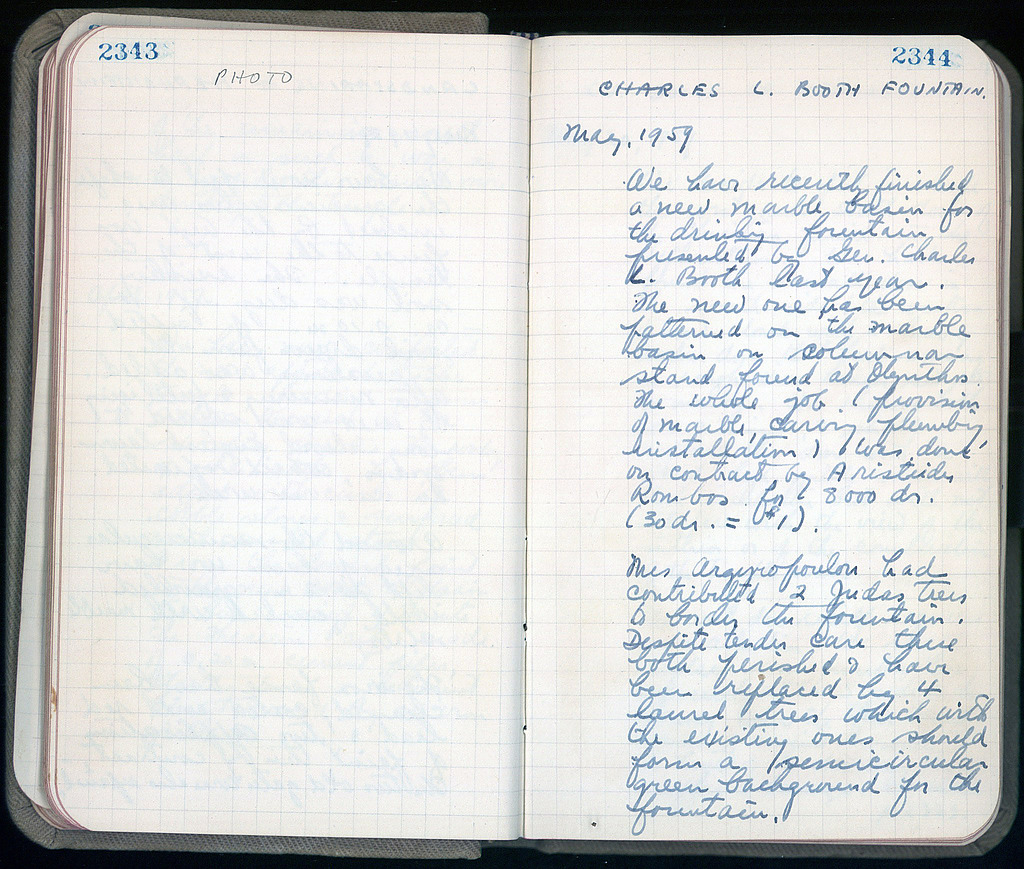 2343
PHOTO
2344
CHARLES L. BOOTH FOUNTAIN.
May, 1959
We have recently finished
a new marble basin for
the drinking fountain
presented by Gen. Charles
L. Booth last year.
The new one has been
patterned on the marble
basin on columnar
stand found at Olynthos.
The whole job (provision
of marble, carving, plumbing,
installation) was done
on contract by Aristides
Rombos for 8000 dr.
(30 dr. = $1).
Mrs Argyropoulou had
contributed 2 Judas trees
to border the fountain.
Despite tender care these
both perished & have
been replaced by 4
laurel trees which with
the existing ones should
form a semicircular
green background for the
fountain.